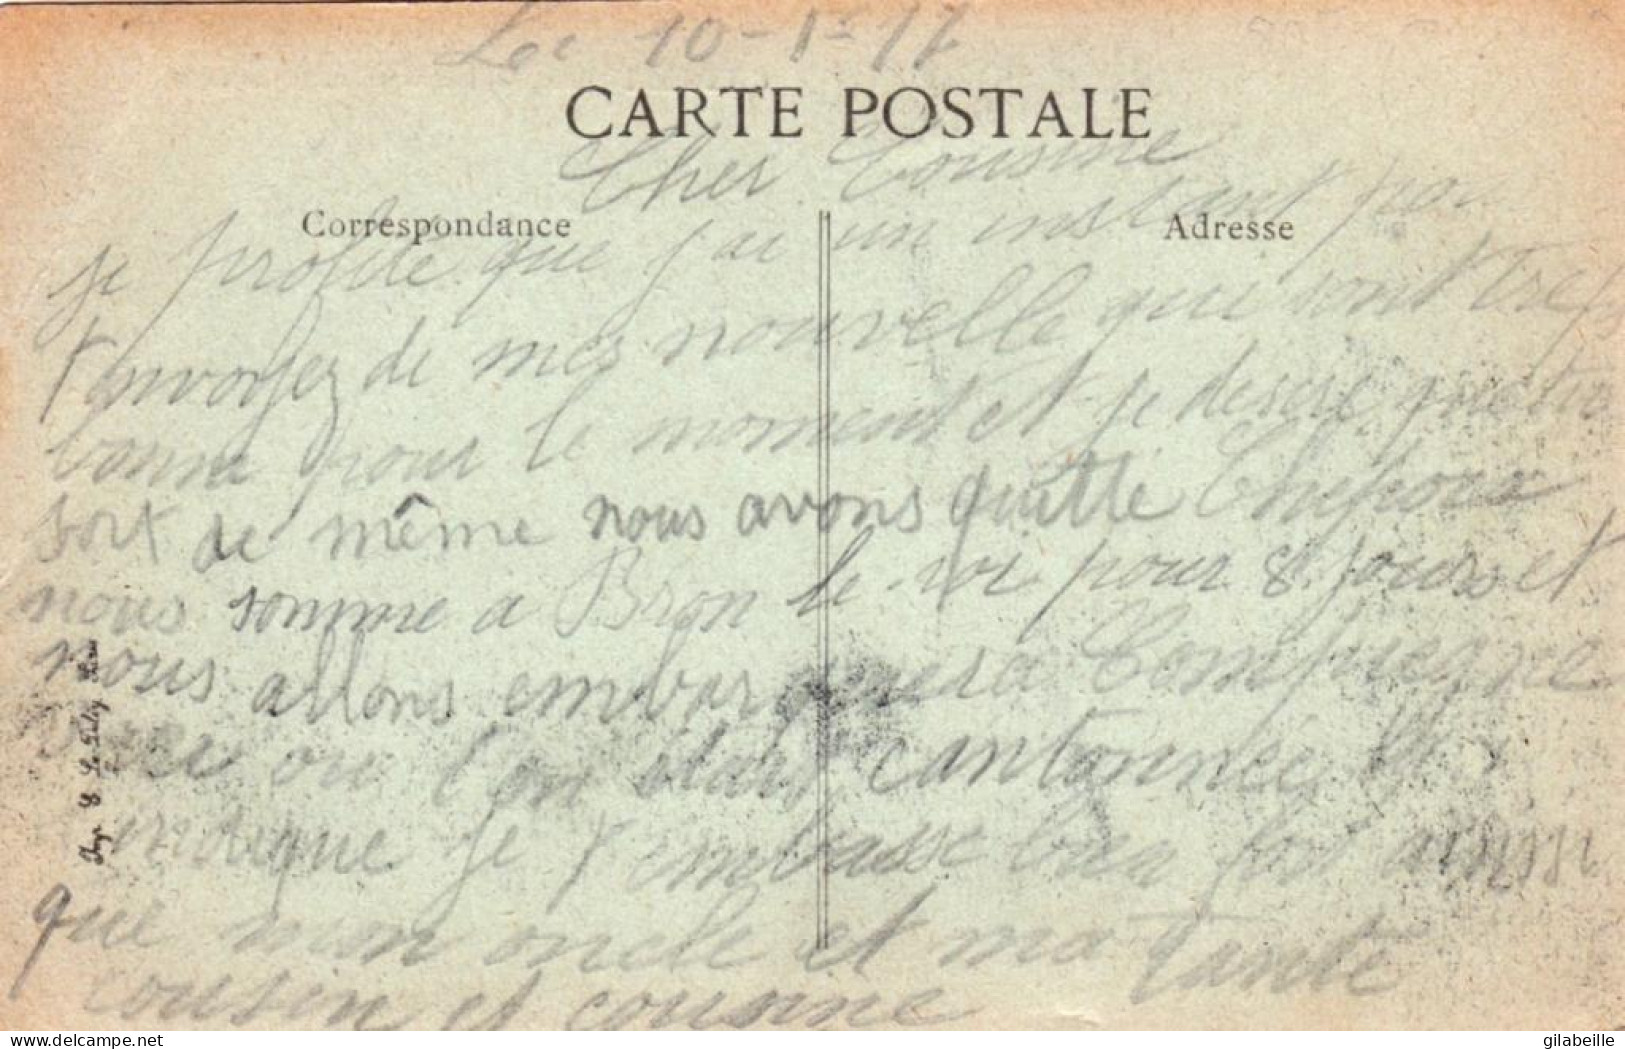 Le 10-1-17
CARTE POSTALE
Cher Cousine
Correspondance
Adresse
je profite que j'ai un instant pour
t'anvoyez de mes nouvelle qui sont tres
bonne pour le moment et je desire
sort de même nous avons quitte Chepoix
nous somme a Bron le roi pour 8 jours et
nous allons embarquer a Compiegne
ou l'on etait cantonnée
indique je t'embrasse bien fort ainssi
que mon oncle et ma tante
cousin et cousine
gilabeille